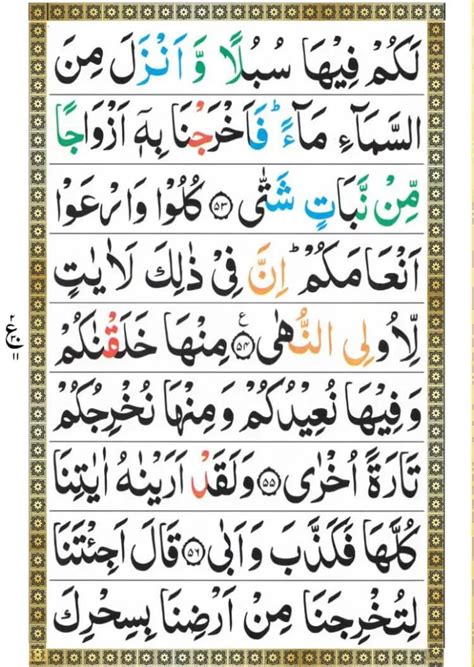 لَكُمْ فِيْهَا سُبُلًا وَّ اَنْزَلَ مِنَ
السَّمَآءِ مَآءً ؕ فَاَخْرَجْنَا بِهٖۤ اَزْوَاجًا
مِّنْ نَّبَاتٍ شَتّٰى ﴿۵۳﴾ كُلُوْا وَارْعَوْا
اَنْعَامَكُمْ ؕ اِنَّ فِیْ ذٰلِكَ لَاٰیٰتٍ
لِّاُولِی النُّهٰى ﴿۵۴﴾ ع مِنْهَا خَلَقْنٰكُمْ
وَفِیْهَا نُعِیْدُكُمْ وَمِنْهَا نُخْرِجُكُمْ
تَارَةً اُخْرٰى ﴿۵۵﴾ وَلَقَدْ اَرَیْنٰهُ اٰیٰتِنَا
كُلَّهَا فَكَذَّبَ وَاَبٰى ﴿۵۶﴾ قَالَ اَجِئْتَنَا
لِتُخْرِجَنَا مِنْ اَرْضِنَا بِسِحْرِكَ